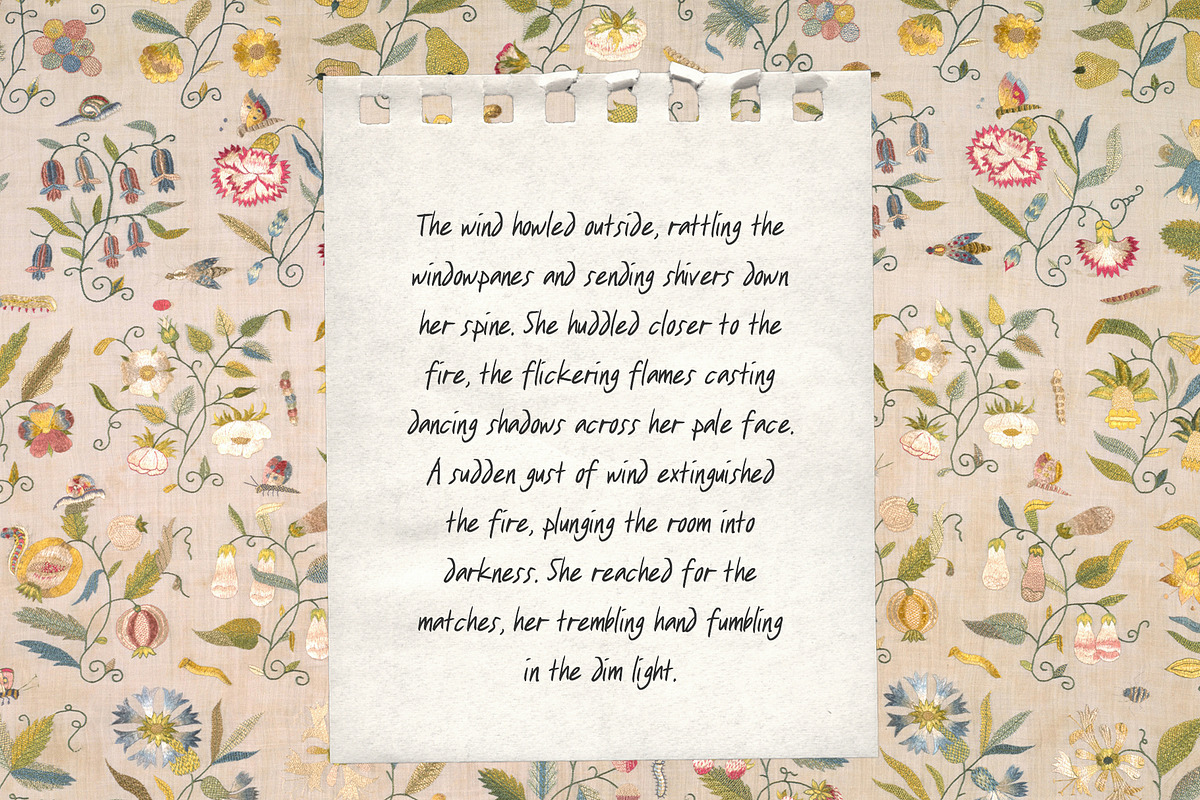 The wind howled outside, rattling the
windowpanes and sending shivers down
her spine. She huddled closer to the
fire, the flickering flames casting
dancing shadows across her pale face.
A sudden gust of wind extinguished
the fire, plunging the room into
darkness. She reached for the
matches, her trembling hand fumbling
in the dim light.